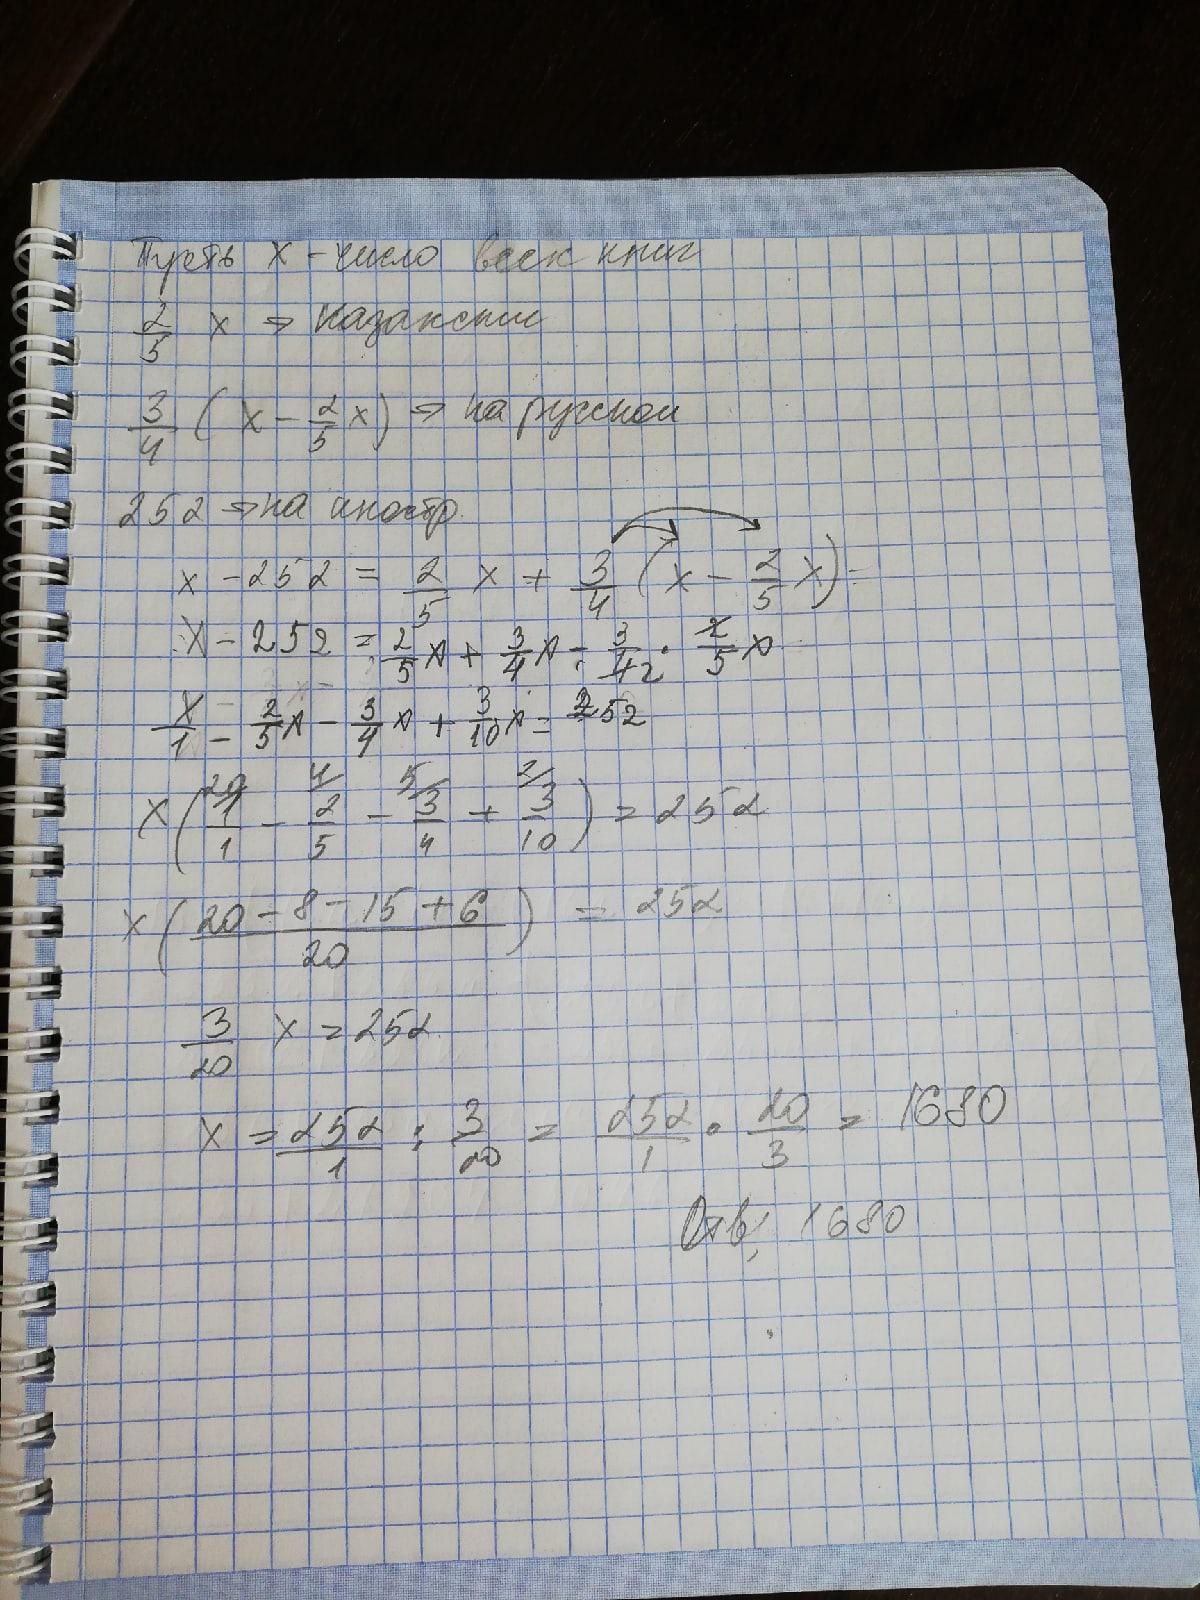 Пусть x - число всех книг
2/5 x => казахские
3/4 (x - 2/5 x) => на русском
252 => на иностр.
x - 252 = 2/5 x + 3/4 (x - 2/5 x) =
x - 252 = 2/5 x + 3/4 x - 3/4 2 · 2/5 x
x/1 - 2/5 x - 3/4 x + 3/10 x = 252
x (20/ 1/1 - 4/ 2/5 - 5/ 3/4 + 2/ 3/10) = 252
x ((20 - 8 - 15 + 6)/20) = 252
3/20 x = 252
x = 252/1 : 3/20 = 252/1 · 20/3 = 1680
Отв; 1680